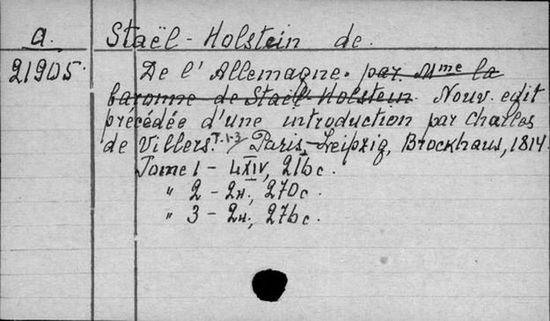 a. Staël-Holstein de.
21905. De l'Allemagne. par Mme la
baronne de Staël-Holstein. Nouv. edit
précédée d'une introduction par Charles
de Villers. T. 1-3 Paris-Leipzig, Brockhaus, 1814.
Tome 1 - 4 XIV, 216 c.
" 2 - 2 н., 270 c.
" 3 - 2 н., 276 c.